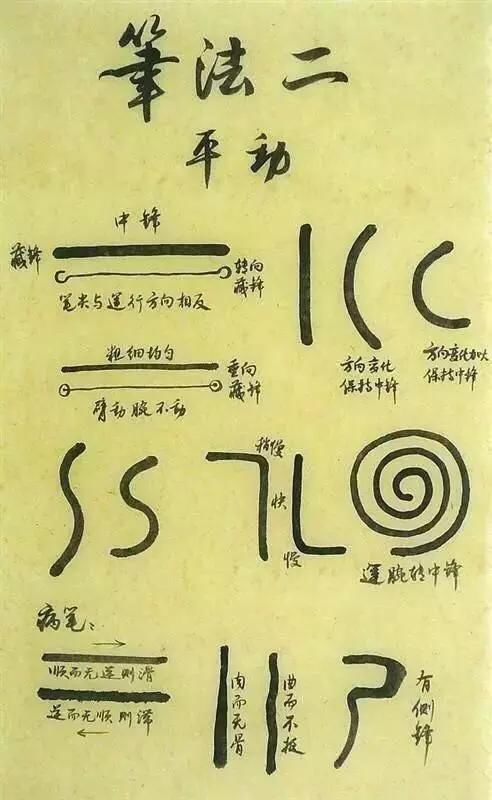 筆法二
平動
中鋒
藏鋒
转向
藏鋒
笔尖与運行方向相反
粗细均匀
垂向
藏鋒
臂动腕不动
方向变化
保持中锋
方向变化加大
保持中锋
稍慢
快
慢
運腕转中锋
病笔：
顺而无逆则滑
逆而无顺则滞
肉而无骨
曲而不挺
有侧锋